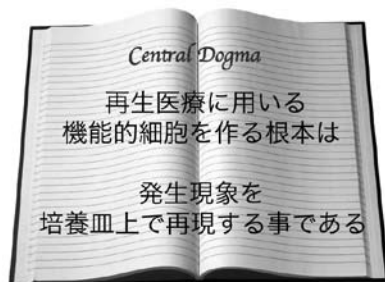 Central Dogma
再生医療に用いる
機能的細胞を作る根本は
発生現象を
培養皿上で再現する事である